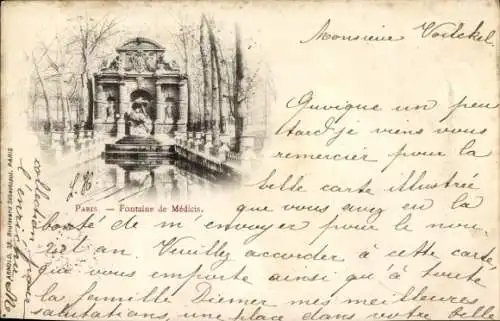 Monsieur Voelckel.
Quoique un peu
tard je viens vous
remercier pour la
belle carte illustrée
que vous avez eu la
PARIS. — Fontaine de Médicis.
bonté de m'envoyer pour le nou-
vel an. Veuillez accorder à cette carte
que vous emporte ainsi qu'à toute
la famille Diemer mes meilleures
salutations, une place dans votre belle
collection